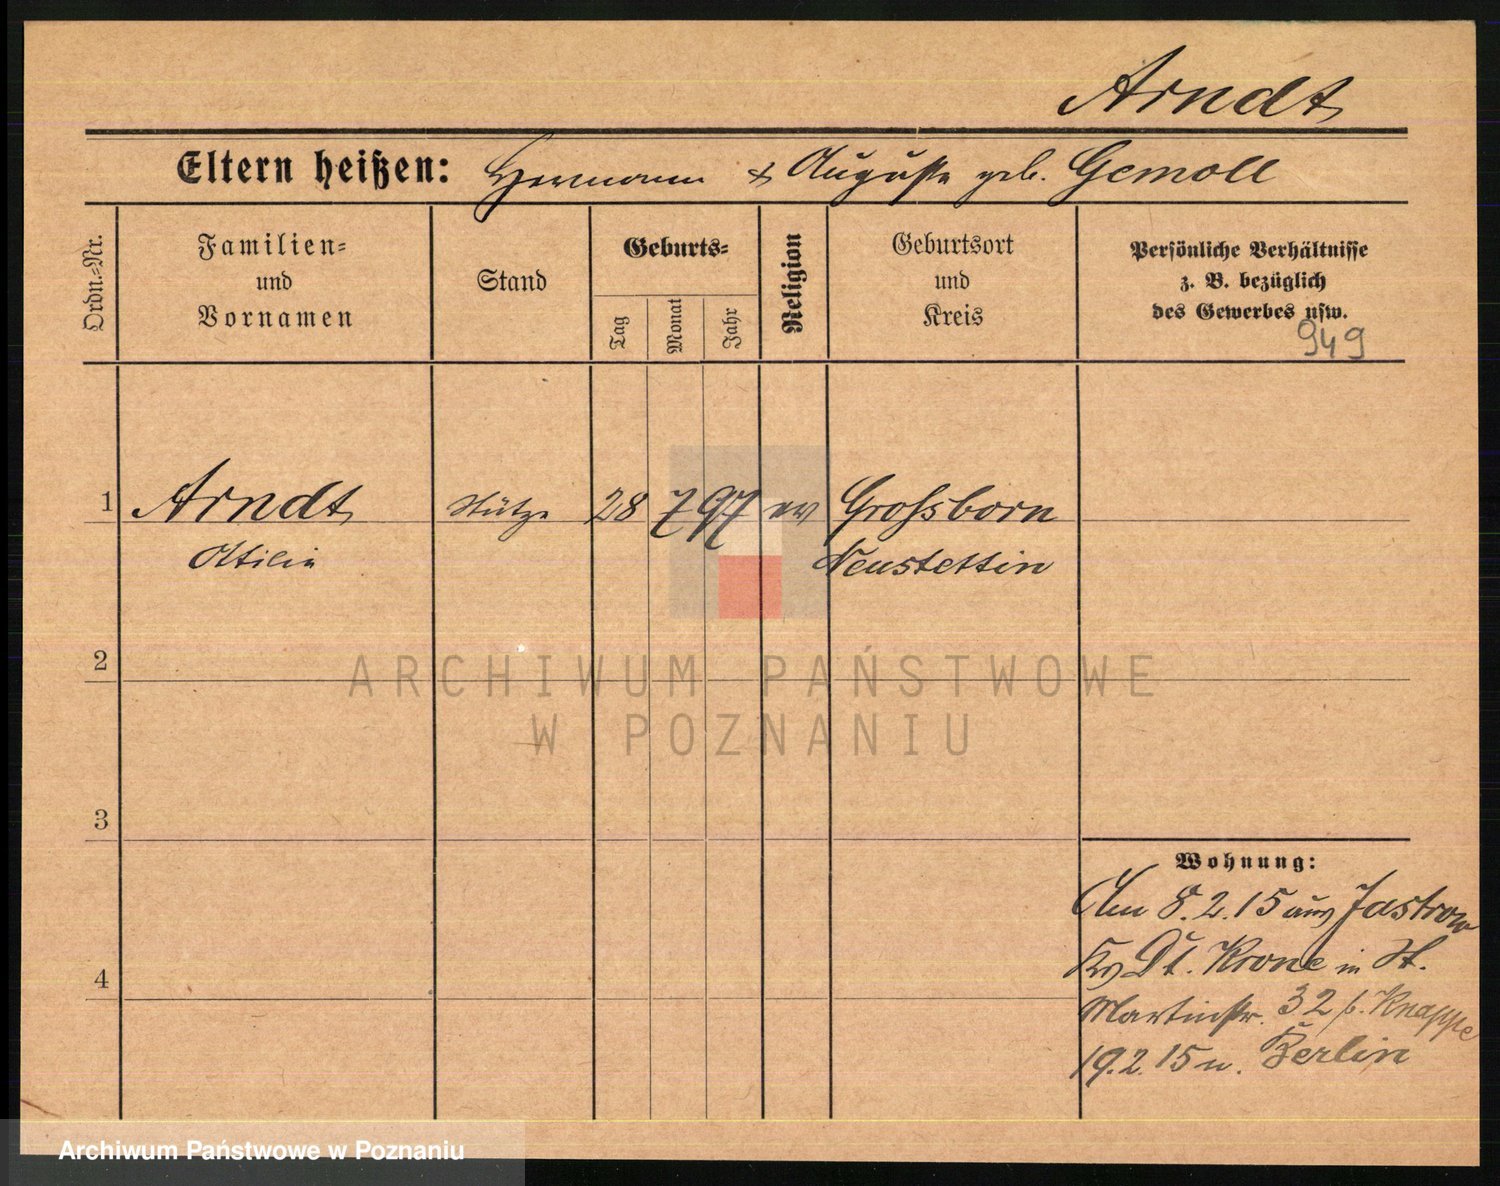 Arndt
Eltern heißen: Hermann & Auguste geb. Gemoll
Ordn.=Nr.
Familien=
und
Vornamen
Stand
Geburts=
Tag
Monat
Jahr
Religion
Geburtsort
und
Kreis
Persönliche Verhältnisse
z. B. bezüglich
des Gewerbes usw.
949
1 Arndt Stütze 28 7 97 ev Grossborn
Ottilie Neustettin
2
3
4
Wohnung:
Am 8.2.15 aus Jastrow
Krs Dt. Krone in St.
Martinstr. 32 b. Knappe
19.2.15 n. Berlin
ARCHIWUM PAŃSTWOWE
W POZNANIU
Archiwum Państwowe w Poznaniu